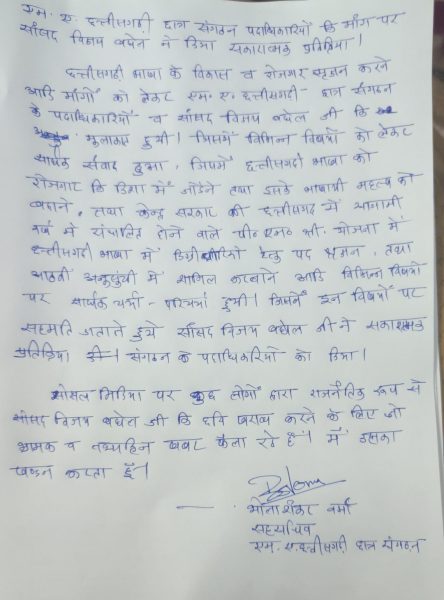 एम. ए. छत्तीसगढ़ी छात्र संगठन पदाधिकारियों कि मांग पर
सांसद विजय बघेल ने दिया सकारात्मक प्रतिक्रिया।
छत्तीसगढ़ी भाषा के विकास व रोजगार सृजन करने
आदि मांगों को लेकर एम. ए. छत्तीसगढ़ी छात्र संगठन
के पदाधिकारियों व सांसद विजय बघेल जी कि
मुलाकात हुयी। जिसमें विभिन्न विषयों को लेकर
सार्थक संवाद हुआ, जिसमें छत्तीसगढ़ी भाषा को
रोजगार कि दिशा में जोड़ने तथा इसके भाषायी महत्व को
बढ़ाने, तथा केन्द्र सरकार की छत्तीसगढ़ में आगामी
वर्ष में संचालित होने वाले पी. एम. श्री. योजना में
छत्तीसगढ़ी भाषा में डिग्रीधारियों हेतु पद सृजन, तथा
आठवीं अनुसूची में शामिल करवाने आदि विभिन्न विषयों
पर सार्थक चर्चा - परिचर्चा हुयी। जिसमें इन विषयों पर
सहमति जताते हुये सांसद विजय बघेल जी ने सकारात्मक
प्रतिक्रिया संगठन के पदाधिकारियों को दिया।
सोसल मिडिया पर कुछ लोगों द्वारा राजनैतिक रूप से
सांसद विजय बघेल जी कि छवि खराब करने के लिए जो
भ्रामक व तथ्यहिन खबर फैला रहे हैं। मैं इसका
खण्डन करता हूँ।
वर्मा
सहसचिव
एम. ए. छत्तीसगढ़ी छात्र संगठन